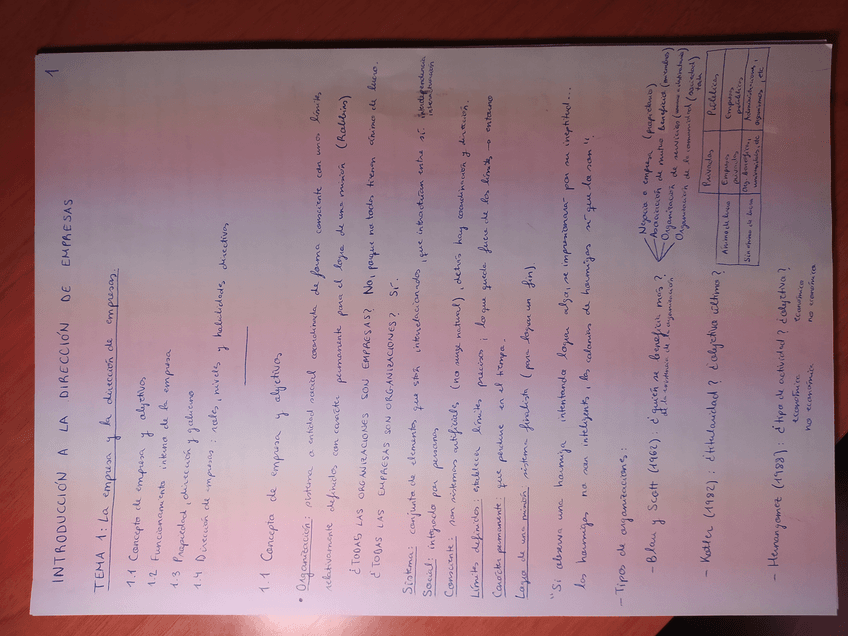 1
INTRODUCCIÓN A LA DIRECCIÓN DE EMPRESAS
TEMA 1: La empresa y la dirección de empresas
1.1 Concepto de empresa y objetivos
1.2 Funcionamiento interno de la empresa
1.3 Propiedad, dirección y gobierno
1.4 Dirección de empresas: roles, niveles y habilidades directivas
1.1 Concepto de empresa y objetivos
• Organización: sistema o entidad social coordinada de forma consciente con unos límites
relativamente definidos con carácter permanente para el logro de una misión (Robbins)
¿TODAS LAS ORGANIZACIONES SON EMPRESAS? No, porque no todas tienen ánimo de lucro.
¿TODAS LAS EMPRESAS SON ORGANIZACIONES? Sí.
Sistema: conjunto de elementos, que están interrelacionados, que interactúan entre sí. interdependencia
interacción
Social: integrado por personas
Consciente: son sistemas artificiales (no surge natural), detrás hay coordinación y dirección.
Límites definidos: establecer límites precisos; lo que queda fuera de los límites → entorno
Carácter permanente: que perdure en el tiempo.
Logro de una misión: sistema finalista (para lograr un fin).
"Si observa una hormiga intentando lograr algo, se impresionará por su ineptitud...
las hormigas no son inteligentes, las colonias de hormigas sí que lo son".
- Tipos de organizaciones:
- Blau y Scott (1962): ¿quién se beneficia más?
de la existencia de la organización
Negocio o empresa (propietario)
Asociación de mutuo beneficio (miembros)
Organización de servicios
Organización de la comunidad (sociedad)
toda
- Kotler (1982): ¿titularidad? ¿objetivo último?
Privadas Públicas
Ánimo de lucro Empresas privadas Empresas públicas
Sin ánimo de lucro
- (1988): ¿tipo de actividad? ¿objetivo?
económica económico
no económica no económico